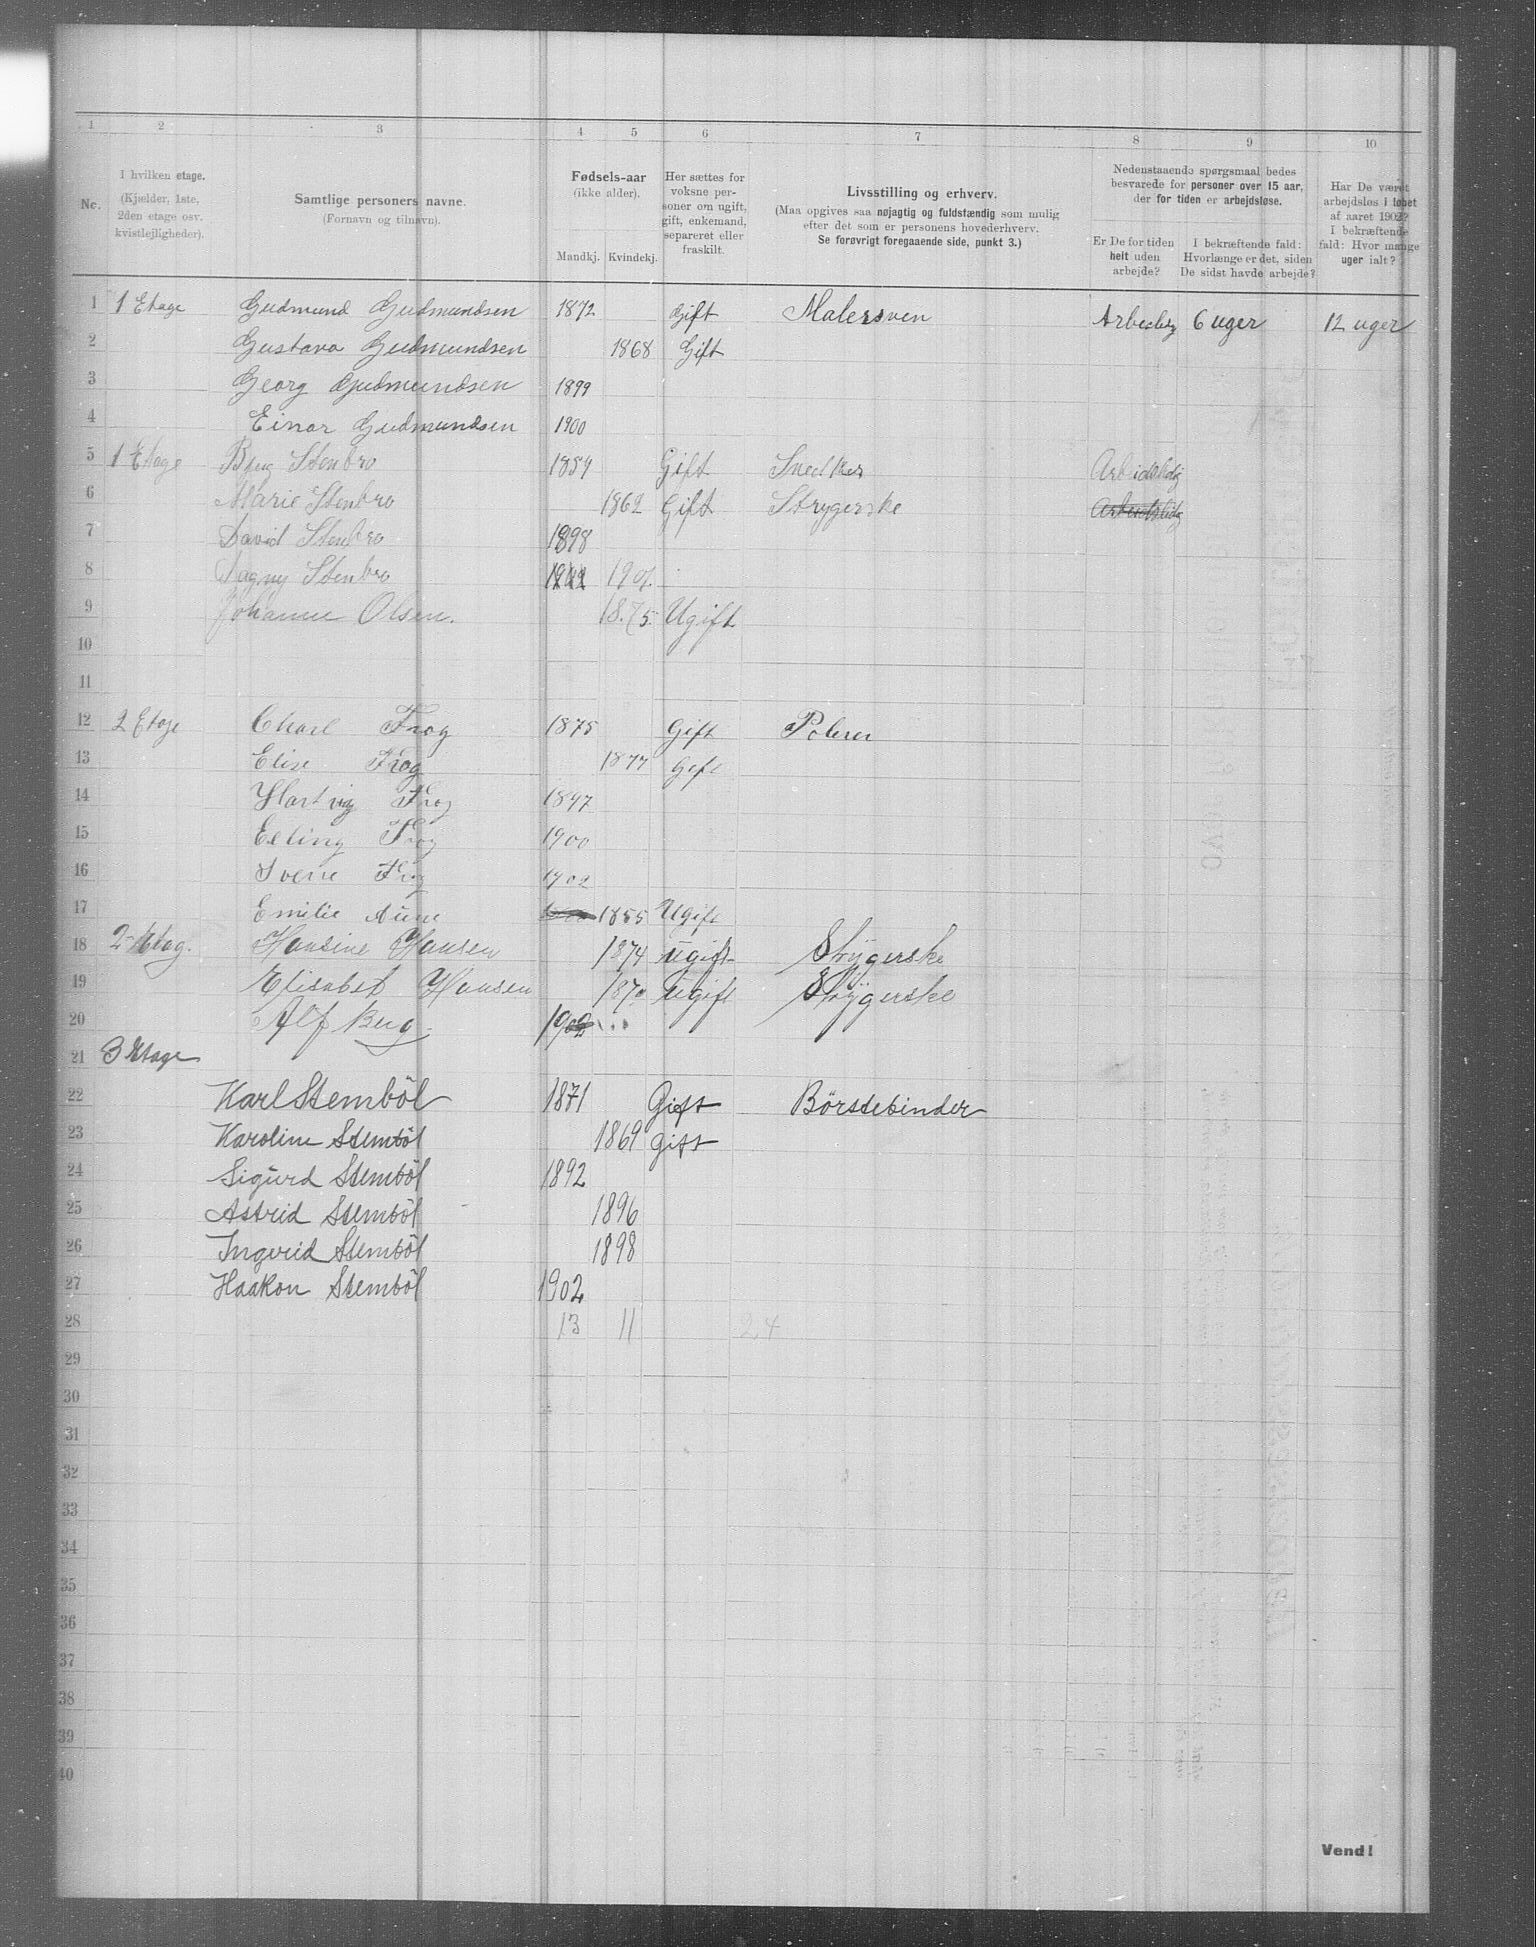 1 2 3 4 5 6 7 8 9 10
No.
I hvilken etage.
(Kjelder, 1ste,
2den etage osv.
kvistlejligheder).
Samtlige personers navne.
(Fornavn og tilnavn).
Fødsels-aar
(ikke alder).
Mandkj. Kvindekj.
Her sættes for
voksne per-
soner om ugift,
gift, enkemand,
separeret eller
fraskilt.
Livsstilling og erhverv.
(Maa opgives saa nøjagtig og fuldstændig som mulig
efter det som er personens hovederhverv.
Se forøvrigt foregaaende side, punkt 3.)
Nedenstaaende spørgsmaal bedes
besvarede for personer over 15 aar,
der for tiden er arbejdsløse.
Er De for tiden
helt uden
arbejde?
I bekræftende fald:
Hvorlænge er det, siden
De sidst havde arbejde?
Har De været
arbejdsløs i løbet
af aaret 1902?
I bekræftende
fald: Hvor mange
uger ialt?
1 1 Etage Gudmund Gudmundsen 1872 Gift Malersven 6 uger 12 uger
2 Gustava Gudmundsen 1868 Gift
3 Georg Gudmundsen 1899
4 Einar Gudmundsen 1900
5 1 Etage Stenbro 1854 Gift Snedker Arbeidsledig
6 Marie Stenbro 1862 Gift Strygerske Arbeidsledig
7 David Stenbro 1898
8 Dagny Stenbro 1901
9 Johanne Olsen. 1875 Ugift
10
11
12 2 Etage Charl Frog 1875 Gift Polerer
13 Elise Frog 1877 Gift
14 Hartvig Frog 1897
15 Erling Frog 1900
16 Sverre Frog 1902
17 Emilie Aune 1855 Ugift
18 2 Etag. Hansine Hansen 1874 ugift Strygerske
19 Elisabet Hansen 1870 ugift Strygerske
20 Alf Berg 1902
21 3 Etage
22 Karl Stemböl 1871 Gift Börstebinder
23 Karoline Stemböl 1869 gift
24 Sigurd Stemböl 1892
25 Astrid Stemböl 1896
26 Ingvrid Stemböl 1898
27 Haakon Stemböl 1902
28 13 11 24
29
30
31
32
33
34
35
36
37
38
39
40
Vend!